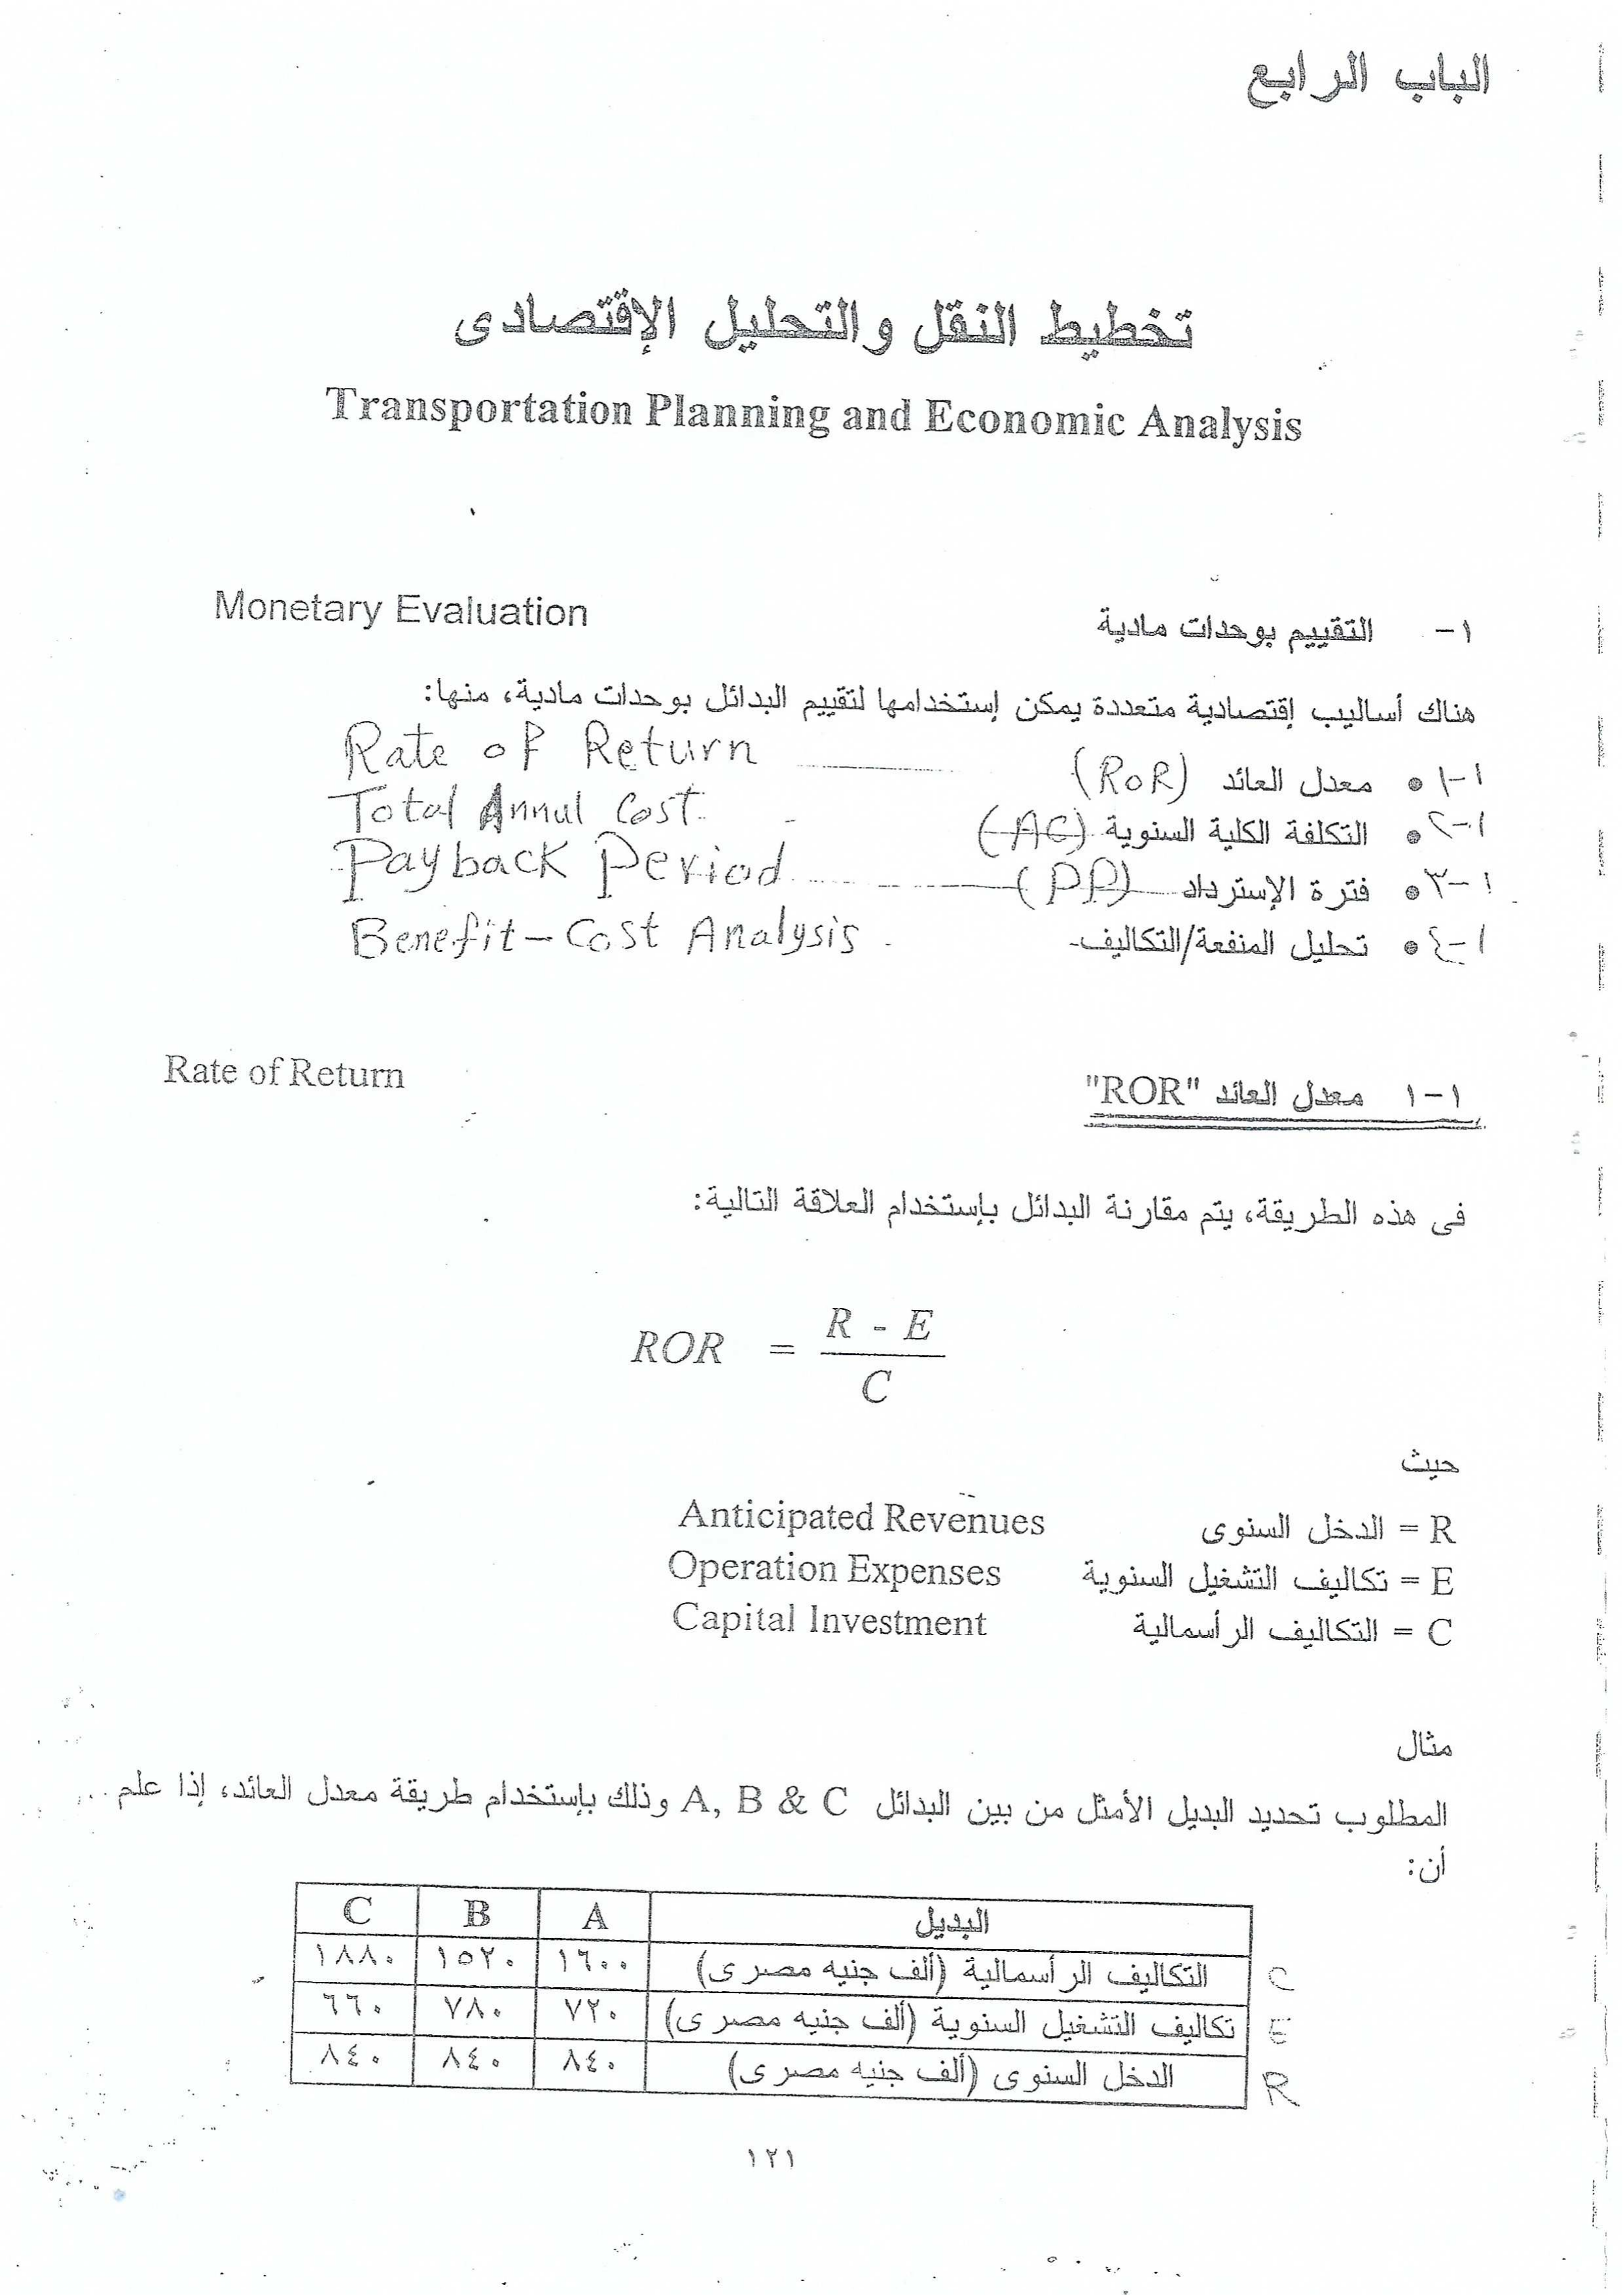 الباب الرابع
تخطيط النقل والتحليل الإقتصادى
Transportation Planning and Economic Analysis
١- التقييم بوحدات مادية Monetary Evaluation
هناك أساليب إقتصادية متعددة يمكن إستخدامها لتقييم البدائل بوحدات مادية، منها:
١-١ • معدل العائد (RoR) Rate of Return
١-٢ • التكلفة الكلية السنوية (AC) Total Annul Cost
١-٣ • فترة الإسترداد (PP) Payback Period
١-٤ • تحليل المنفعة/التكاليف Benefit-Cost Analysis
١-١ معدل العائد "ROR" Rate of Return
فى هذه الطريقة، يتم مقارنة البدائل بإستخدام العلاقة التالية:
ROR = R - E / C
حيث
R = الدخل السنوى Anticipated Revenues
E = تكاليف التشغيل السنوية Operation Expenses
C = التكاليف الرأسمالية Capital Investment
مثال
المطلوب تحديد البديل الأمثل من بين البدائل A, B & C وذلك بإستخدام طريقة معدل العائد، إذا علم
أن:
البديل A B C
C التكاليف الرأسمالية (ألف جنيه مصرى) ١٦٠٠ ١٥٢٠ ١٨٨٠
E تكاليف التشغيل السنوية (ألف جنيه مصرى) ٧٢٠ ٧٨٠ ٦٦٠
R الدخل السنوى (ألف جنيه مصرى) ٨٤٠ ٨٤٠ ٨٤٠
١٢١